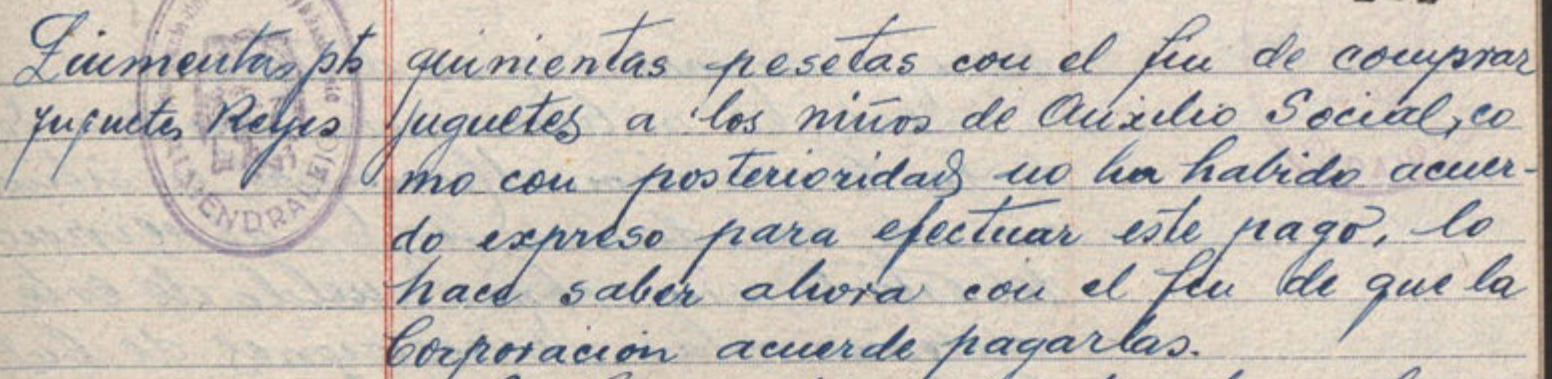 Quinientas pts
juguetes Reyes
ALMENDRALEJO
quinientas pesetas con el fin de comprar
juguetes a los niños de Auxilio Social, co
mo con posterioridad no ha habido acuer-
do expreso para efectuar este pago, lo
hace saber ahora con el fin de que la
Corporación acuerde pagarlas.